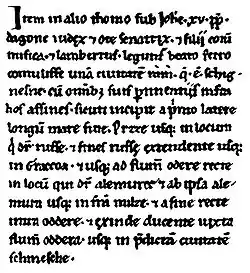 Item in alio thomo sub Johe. xv. pp.
dagone iudex & ote senatrix. & filii eorū
misica. & lambertus. leguntur beato petro
contulisse unā ciuitatē in int. q̄. ē. schig-
nesne. cū omībꝫ suis ꝑtinentiis infra
hos affines. sicuti incipit a pmo latere
longū mare fine. Pruzze usqꝫ in locum
q dr̄ russe. & fines russe extendente usqꝫ
in Craccoa. & usqꝫ ad flum̄ odere recte
in locū qui dr̄ alemure & ab ipsa ale-
mura usqꝫ in trā̄ milze. & a fine recte
intra oddere. & exinde ducente iuxta
flum̄ oddera. usqꝫ in p̄dictā ciuitatē
schinesche.